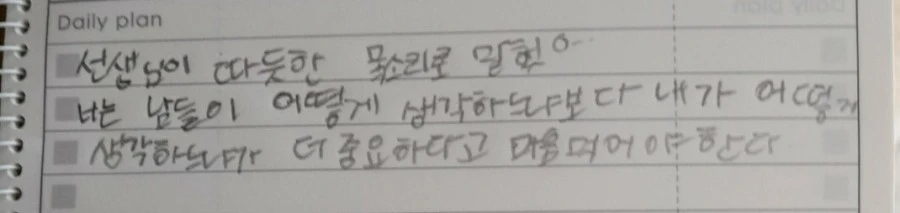 Daily plan
선생님이 따듯한 목소리로 말헀ㅇ..
너는 남들이 어떻게 생각하느냐보다 내가 어떻게
생각하느냐가 더 중요하다고 마음먹어야 한다